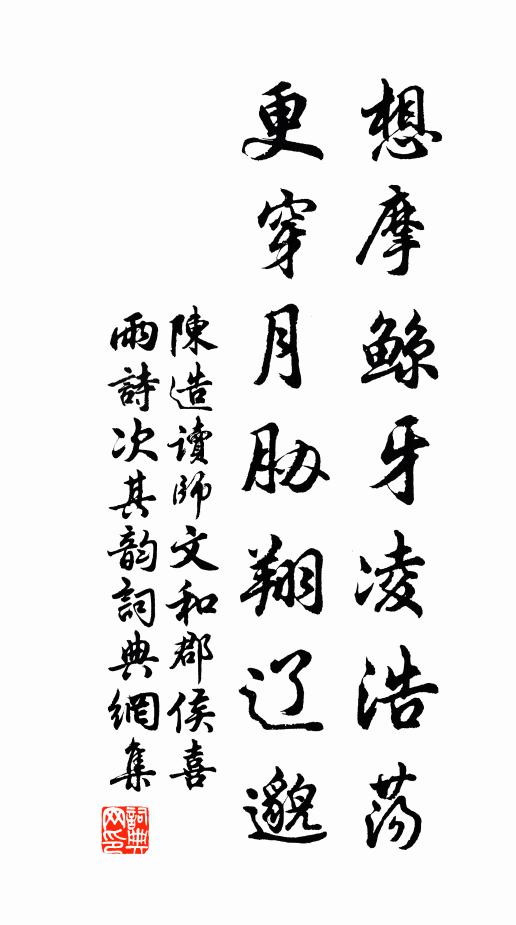 想摩鲸牙凌浩荡
更穿月胁翔辽邈
陳造讀師文和郡侯喜
雨詩次其韵詞典網集
詞典网印